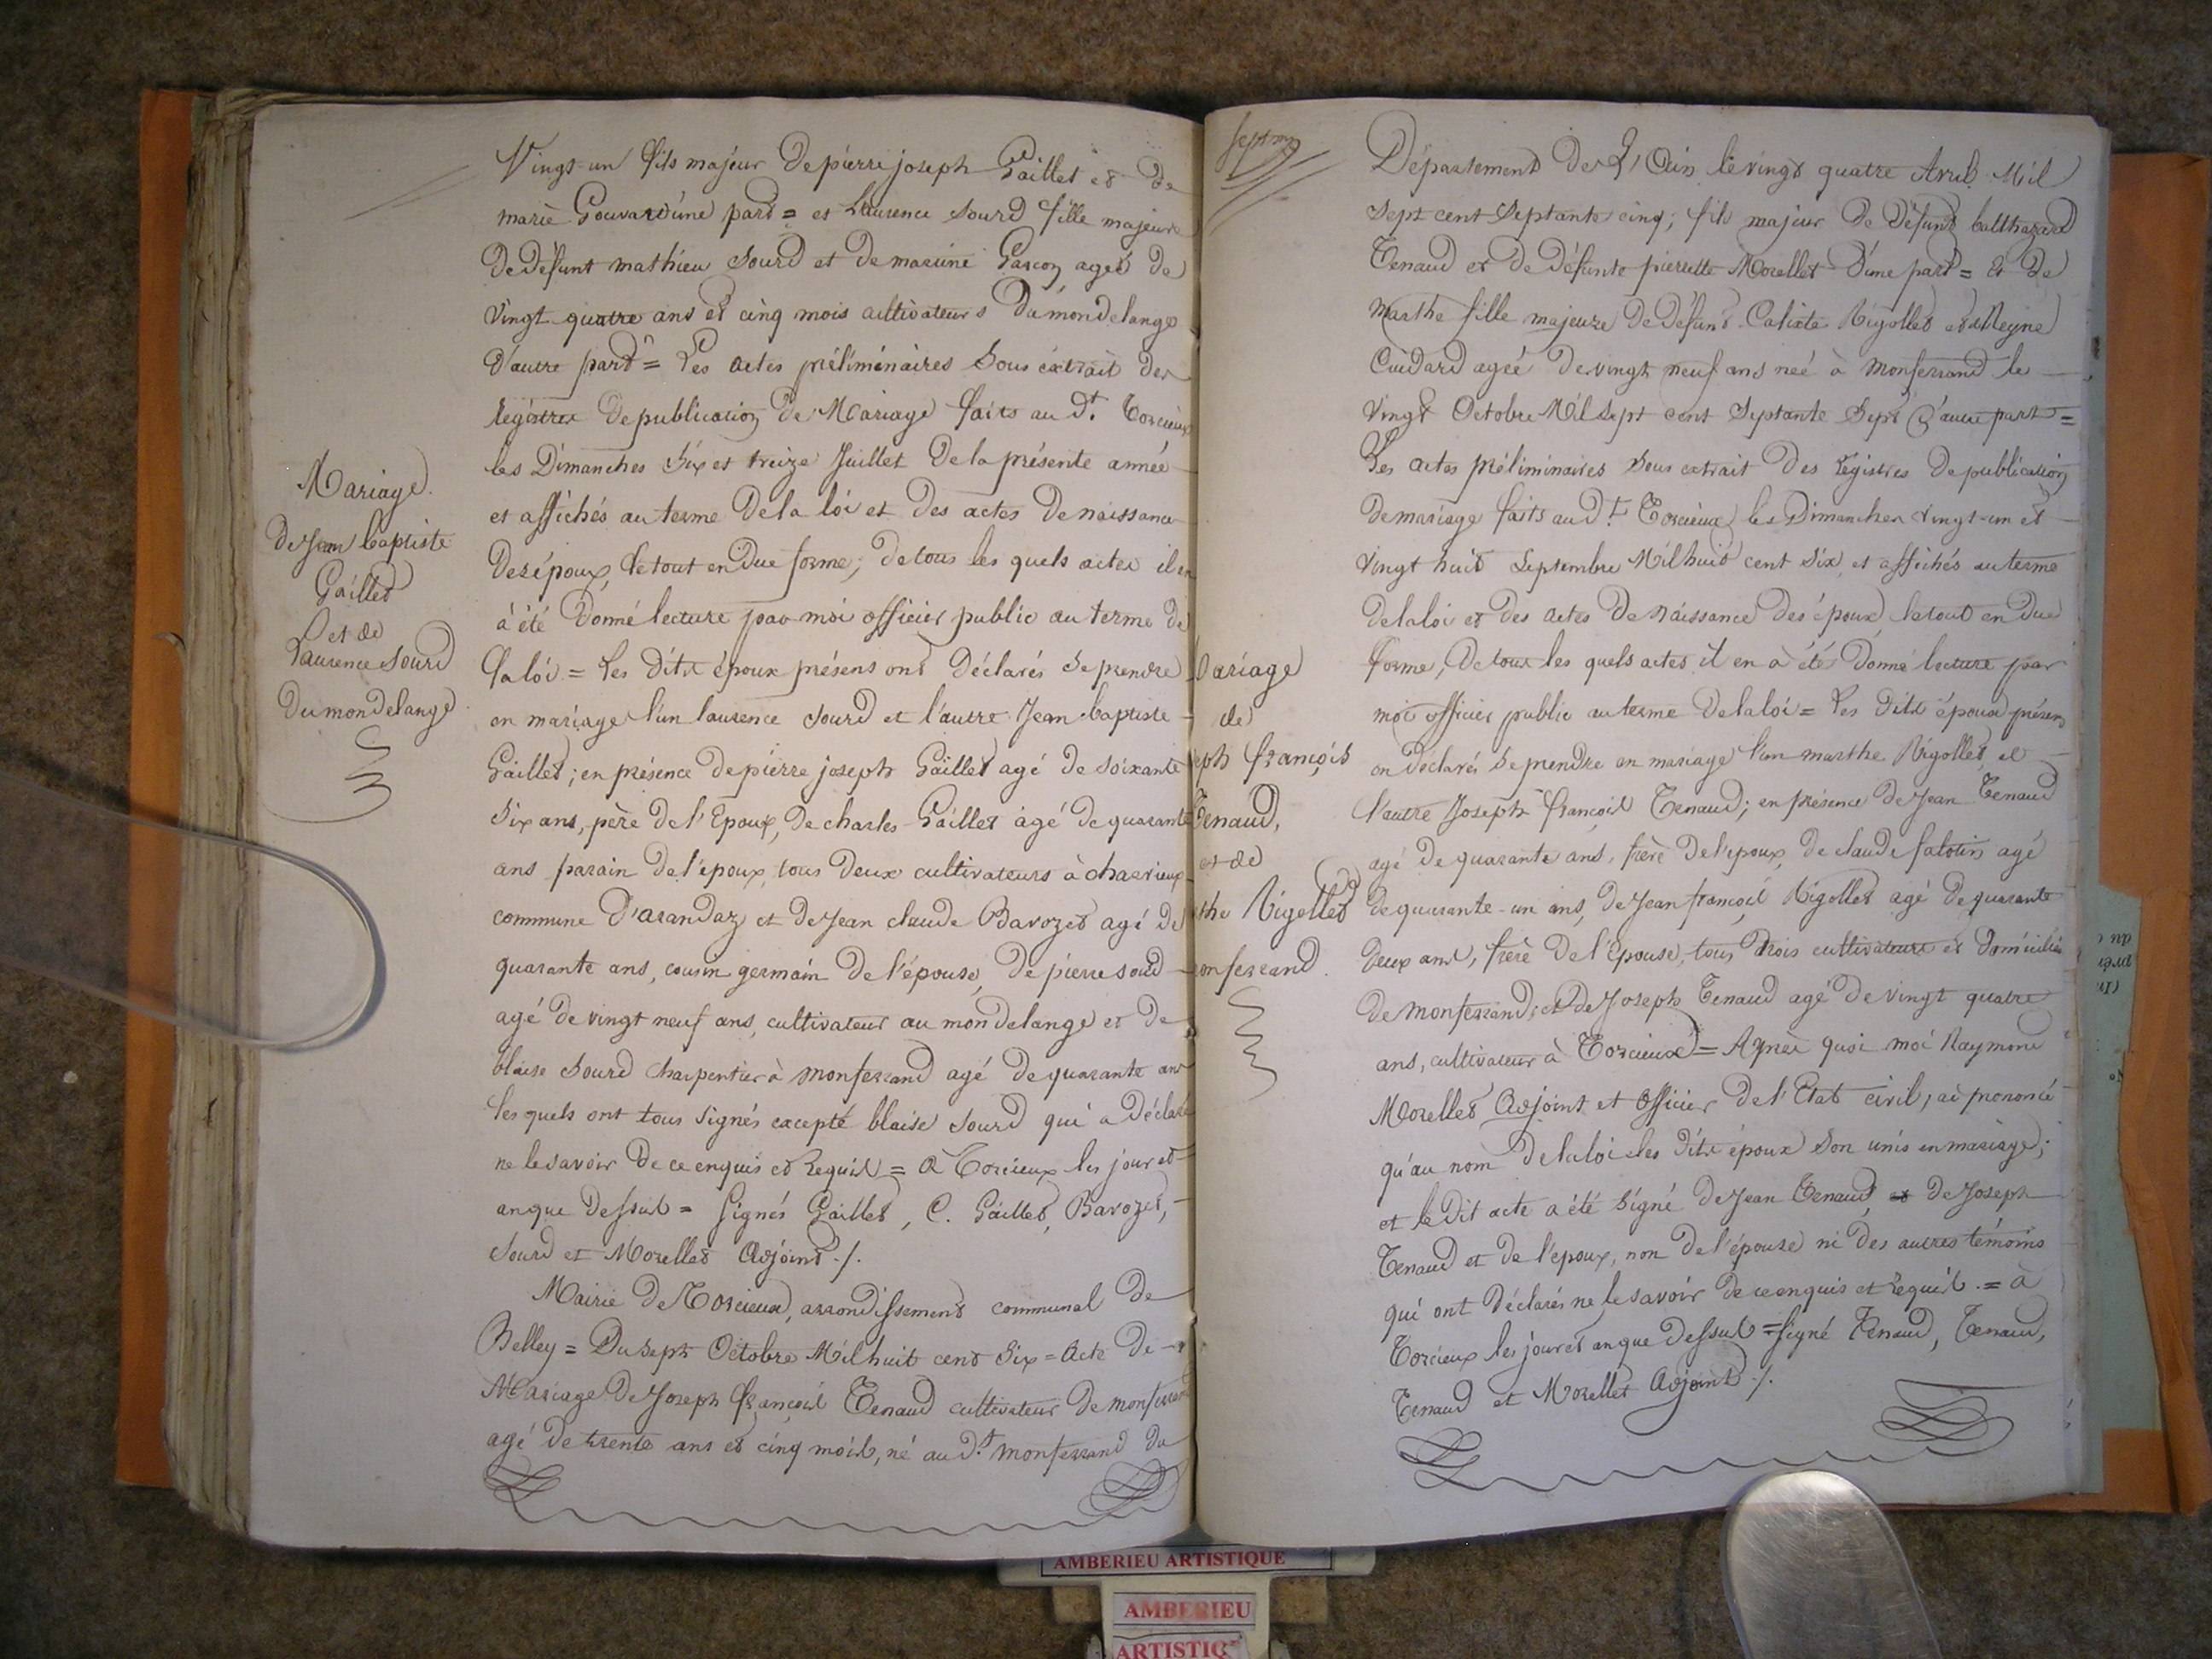 Vingt-un fils majeur De pierre joseph Gaillet et De
marie Gouvard d'une part = et Laurence Sourd fille majeure
De défunt mathieu Sourd et De marine Gascon, ageé de
vingt quatre ans et cinq mois cultivateurs Du mondelange
D'autre part = Les actes préliminaires Sous éxtrait des
Régistres De publication De Mariage faits au Dt. Torcieux
les Dimanches Six et treize Juillet De la présente année
et affichés au terme De la loi et des actes De naissance
Des époux, Le tout en Due forme; de tous les quels actes il en
à été Donné lecture par moi officier public au terme de
la loi = Les Dits époux présens ont Déclarés Se prendre
en mariage l'un laurence Sourd et l'autre Jean baptiste
Gaillet; en présence De pierre joseph Gaillet agé de Soixante
Six ans, père De l'Epoux, De charles Gaillet agé De quarante
ans parain De l'époux, tous Deux cultivateurs à charvieux
commune D'arandaz et De Jean claude Bavozet agé De
quarante ans, cousin germain De l'épouse, De pierre sourd
agé De vingt neuf ans, cultivateur au mondelange et De
blaise Sourd Charpentier à Monferrand agé De quarante ans
les quels ont tous Signés excepté blaise Sourd qui a Déclaré
ne le savoir De ce enquis et Requis = à Torcieux les jour et
an que Dessus = Signés Gaillet, C. Gaillet, Bavozet,
Sourd et Morellet Adjoint ./.
Mairie De Torcieux, arrondissement communal De
Belley = Du sept Octobre Mil huit cent Six = Acte De
Mariage De Joseph françois Tenaud cultivateur De monferrand
agé De trente ans et cinq mois, né au Dt. Monferrand Du
Mariage
De Jean baptiste
Gaillet
et de
Laurence Sourd
Du mondelange
Département De L'Ain le vingt quatre Avril Mil
Sept cent Septante cinq; fils majeur De Défunt balthazard
Tenaud et De Défunte pierrette Morellet D'une part = Et De
Marthe fille majeure De Défunt Calixte Rigollet et Reyne
Cuidard ageé De vingt neuf ans neé à Monferrand le
Vingt Octobre Mil Sept cent Septante Sept D'autre part =
Les actes préliminaires Sous extrait Des Régistres De publication
De mariage faits au Dt. Torcieux les Dimanches vingt-un et
Vingt huit Septembre Mil huit cent Six, et affichés au terme
De la loi et Des actes De Naissance Des époux, le tout en Due
forme, De tous les quels actes il en à été Donné lecture par
moi officier public au terme De la loi = Les Dits époux présens
on Déclarés Se prendre en mariage l'un marthe Rigollet et
l'autre Joseph françois Tenaud; en présence De Jean Tenaud
agé De quarante ans, frère De l'epoux, De claude falotin agé
De quarante-un ans, De Jean françois Rigollet agé De quarante
Deux ans, frère De l'Epouse, tous Trois cultivateurs et Domiciliés
De monferrand; et De Joseph Tenaud agé De vingt quatre
ans, cultivateur à Torcieux = Après quoi moi Raymond
Morellet Adjoint et Officier De l'Etat civil, ai prononcé
qu'au nom De la loi les Dits époux Son unis en mariage;
et le Dit acte a été Signé De Jean Tenaud, De Joseph
Tenaud et de l'epoux, non De l'épouse ni Des autres témoins
qui ont Déclarés ne le savoir De ce enquis et Requis. = à
Torcieux les jour et an que Dessus = Signé Tenaud, Tenaud,
Tenaud et Morellet Adjoint ./.
ariage
de
eph françois
Tenaud,
et de
the Rigollet
onferrand
AMBERIEU ARTISTIQUE
AMBERIEU
ARTISTIQ